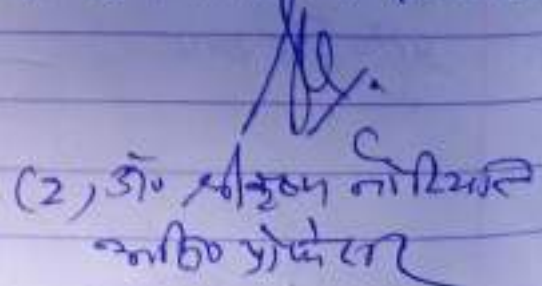 (2) डॉ० श्रीकृष्ण नौटियाल
असि० प्रोफेसर